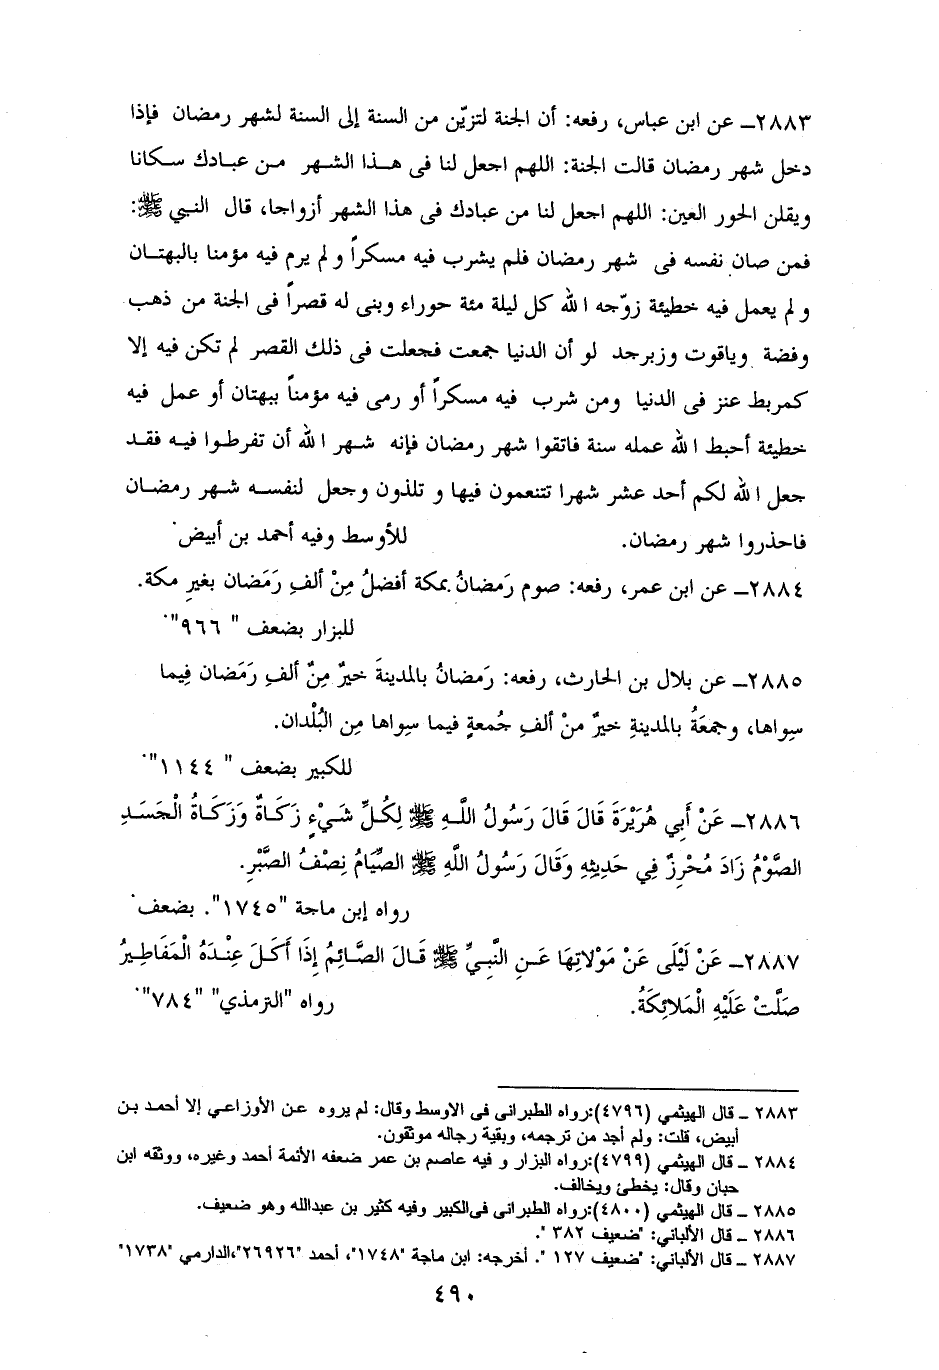 ٢٨٨٣ــ عن ابن عباس، رفعه: أن الجنة لتزيّن من السنة إلى السنة لشهر رمضان فإذا
دخل شهر رمضان قالت الجنة: اللهم اجعل لنا فى هذا الشهر من عبادك سكانا
ويقلن الحور العين: اللهم اجعل لنا من عبادك فى هذا الشهر أزواجا، قال النبي ﷺ:
فمن صان نفسه فى شهر رمضان فلم يشرب فيه مسكراً و لم يرم فيه مؤمنا بالبهتان
و لم يعمل فيه خطيئة زوّجه الله كل ليلة مئة حوراء وبنى له قصراً فى الجنة من ذهب
وفضة وياقوت وزبرجد لو أن الدنيا جمعت فجعلت فى ذلك القصر لم تكن فيه إلا
كمربط عنز فى الدنيا ومن شرب فيه مسكراً أو رمى فيه مؤمناً ببهتان أو عمل فيه
خطيئة أحبط الله عمله سنة فاتقوا شهر رمضان فإنه شهر الله أن تفرطوا فيه فقد
جعل الله لكم أحد عشر شهرا تتنعمون فيها و تلذون وجعل لنفسه شهر رمضان
فاحذروا شهر رمضان. للأوسط وفيه أحمد بن أبيض
٢٨٨٤ــ عن ابن عمر، رفعه: صوم رَمَضانُ بمكة أفضلُ مِنْ ألفِ رَمَضان بغيرِ مكة.
للبزار بضعف " ٩٦٦"
٢٨٨٥ــ عن بلال بن الحارث، رفعه: رَمَضانُ بالمدينةَ خيرٌ مِنٌ ألفِ رَمَضان فِيما
سِواها، وجمعَةُ بالمدينةِ خيرٌ منْ ألفِ جُمعةٍ فيما سِواها مِن البُلْدان.
للكبير بضعف " ١١٤٤"
٢٨٨٦ــ عَنْ أَبِي هُرَيْرَةَ قَالَ قَالَ رَسُولُ اللَّهِ ﷺ لِكُلِّ شَيْءٍ زَكَاةٌ وَزَكَاةُ الْجَسَدِ
الصَّوْمُ زَادَ مُحْرِزٌ فِي حَدِيثِهِ وَقَالَ رَسُولُ اللَّهِ ﷺ الصِّيَامُ نِصْفُ الصَّبْرِ.
رواه إبن ماجة "١٧٤٥". بضعف
٢٨٨٧ــ عَنْ لَيْلَى عَنْ مَوْلَاتِهَا عَنِ النَّبِيِّ ﷺ قَالَ الصَّائِمُ إِذَا أَكَلَ عِنْدَهُ الْمَفَاطِيرُ
صَلَّتْ عَلَيْهِ الْمَلَائِكَةُ. رواه "الترمذي" "٧٨٤"
٢٨٨٣ ــ قال الهيثمي (٤٧٩٦):رواه الطبرانى فى الاوسط وقال: لم يروه عن الأوزاعي إلا أحمد بن
أبيض، قلت: ولم أجد من ترجمه، وبقية رجاله موثقون.
٢٨٨٤ ــ قال الهيثمي (٤٧٩٩):رواه البزار و فيه عاصم بن عمر ضعفه الأئمة أحمد وغيره، ووثقه ابن
حبان وقال: يخطئ ويخالف.
٢٨٨٥ ــ قال الهيثمي (٤٨٠٠):رواه الطبرانى فى الكبير وفيه كثير بن عبدالله وهو ضعيف.
٢٨٨٦ ــ قال الألباني: "ضعيف ٣٨٢ ".
٢٨٨٧ ــ قال الألباني: "ضعيف ١٢٧ ". أخرجه: ابن ماجة "١٧٤٨"، أحمد "٢٦٩٢٦"،الدارمي "١٧٣٨"
٤٩٠